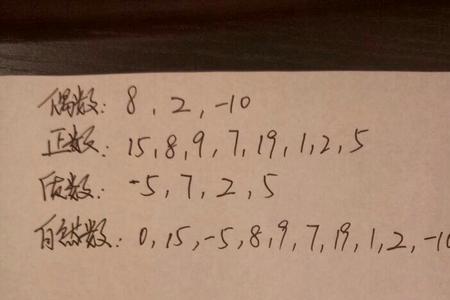 偶数: 8, 2, -10
正数: 15, 8, 9, 7, 19, 1, 2, 5
质数: -5, 7, 2, 5
自然数: 0, 15, -5, 8, 9, 7, 19, 1, 2, -10